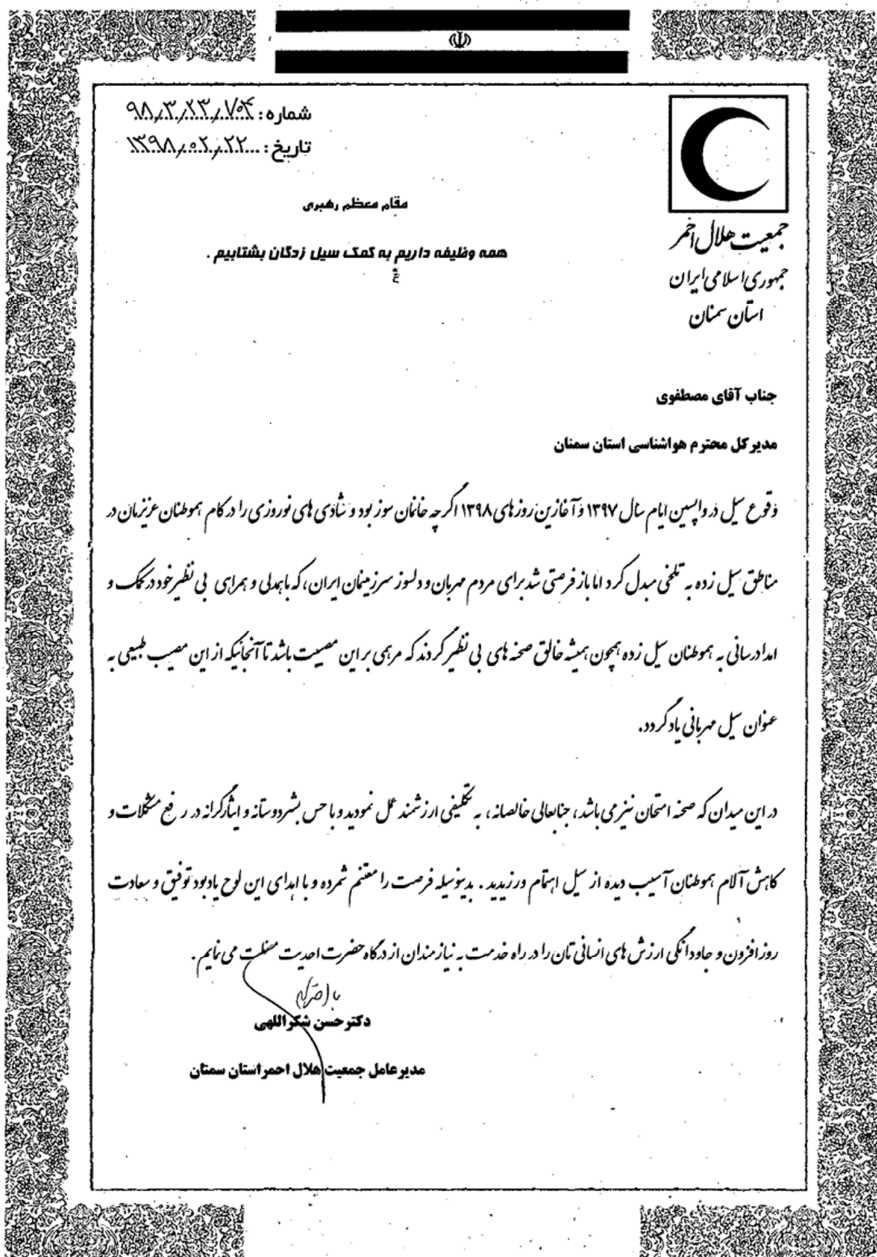 شماره : ۹۸/۳/۲۳/۷۰۴
تاریخ : ۱۳۹۸/۰۲/۲۲
جمعیت هلال احمر
جمهوری اسلامی ایران
استان سمنان
مقام معظم رهبری
همه وظیفه داریم به کمک سیل زدگان بشتابیم .
جناب آقای مصطفوی
مدیرکل محترم هواشناسی استان سمنان
وقوع سیل در واپسین ایام سال ۱۳۹۷ و آغازین روزهای ۱۳۹۸ اگرچه خانمان سوز بود و شادی های نوروزی را در کام هموطنان عزیزمان در
مناطق سیل زده به تلخی مبدل کرد اما باز فرصتی شد برای مردم مهربان و دلسوز سرزمینمان ایران، که با همدلی و همراهی بی نظیر خود در کمک و
امدادرسانی به هموطنان سیل زده همچون همیشه خالق صحنه های بی نظیر گردند که مرهمی بر این مصیبت باشد تا آنجائیکه از این مصیب طبیعی به
عنوان سیل مهربانی یاد گردد.
در این میدان که صحنه امتحان نیز می باشد ، جنابعالی خالصانه ، به تکلیفی ارزشمند عمل نمودید و با حس بشردوستانه و ایثارگرانه در رفع مشکلات و
کاهش آلام هموطنان آسیب دیده از سیل اهتمام ورزیدید . بدینوسیله فرصت را مغتنم شمرده و با اهدای این لوح یادبود توفیق و سعادت
روز افزون و جاودانگی ارزش های انسانی تان را در راه خدمت به نیازمندان از درگاه حضرت احدیت مسئلت می نمایم .
با احترام
دکترحسن شکراللهی
مدیرعامل جمعیت هلال احمراستان سمنان